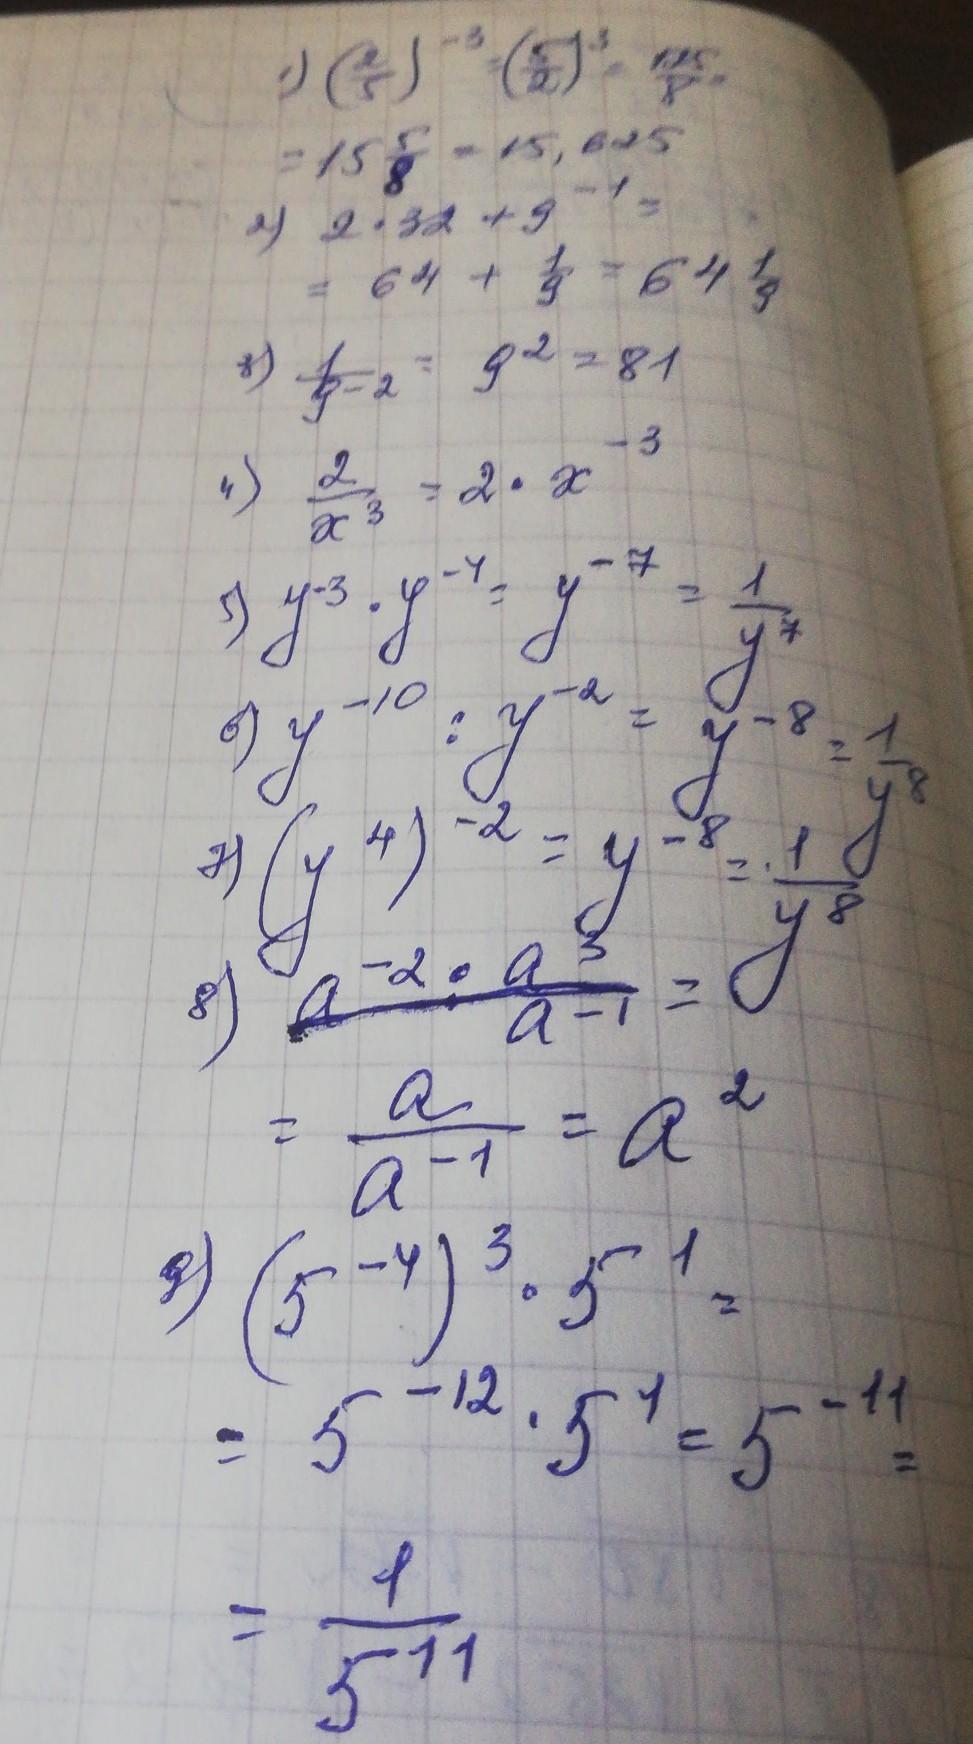 1) (2/5)^-3 = (5/2)^3 = 125/8 =
= 15 5/8 = 15,625
2) 2 · 32 + 9^-1 =
= 64 + 1/9 = 64 1/9
3) 1/9^-2 = 9^2 = 81
4) 2/x^3 = 2 · x^-3
5) y^-3 · y^-4 = y^-7 = 1/y^7
6) y^-10 : y^-2 = y^-8 = 1/y^8
7) (y^4)^-2 = y^-8 = 1/y^8
8) a^-2 · a^3/a^-1 =
= a/a^-1 = a^2
9) (5^-4)^3 · 5^1 =
= 5^-12 · 5^1 = 5^-11 =
= 1/5^11